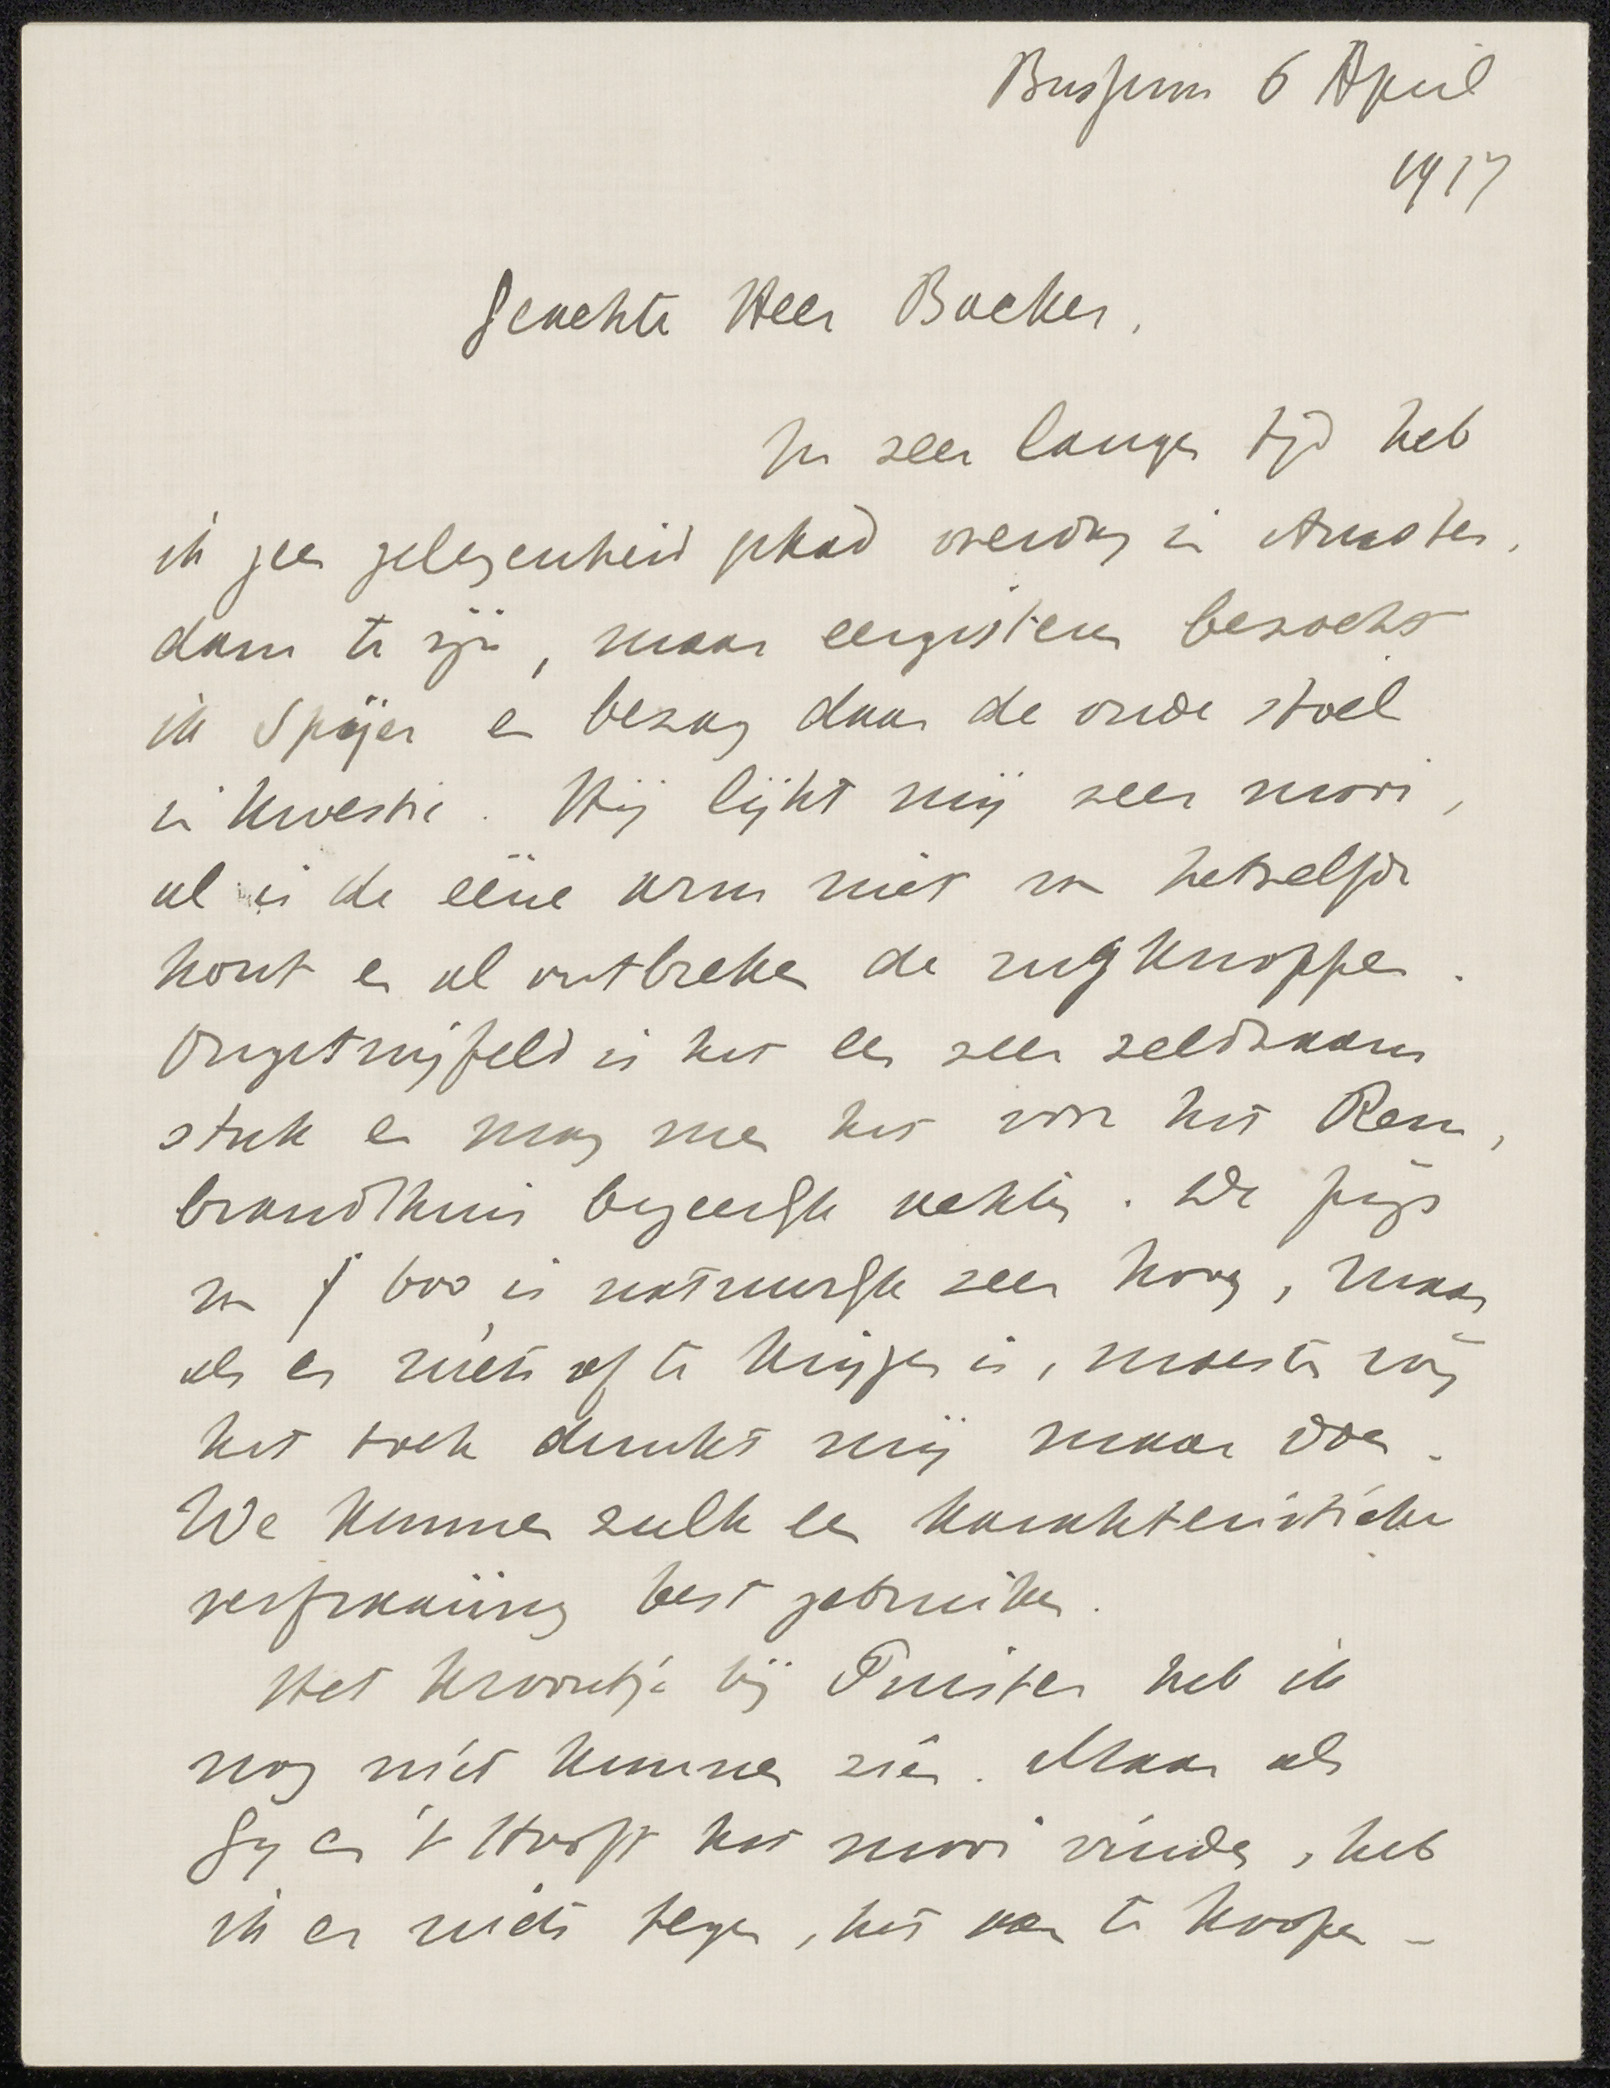 Bussum 6 April
1917
Geachte Heer Backer,
In zeer langen tijd heb
ik geen gelegenheid gehad overdag in Amster-
dam te zijn, maar eergisteren bezocht
ik Speijer en bezag daar de oude stoel
in kwestie. Hij lijkt mij zeer mooi,
al is de eëne arm niet van hetzelfde
hout en al ontbreken de rugknoppen.
Ongetwijfeld is het een zeer zeldzaam
stuk en mag men het voor het Rem-
brandthuis begeerlijk achten. De prijs
van f 600, is natuurlijk zeer hoog, maar
als er niets af te krijgen is, moesten wij
het toch dunkt mij maar doen.
We kunnen zulk een karakteristieke
verfraaiing best gebruiken.
Het kroontje bij Puister heb ik
nog niet kunnen zien. Maar als
Gij en 't Hooft het mooi vinden, heb
ik er niets tegen, het aan te koopen -